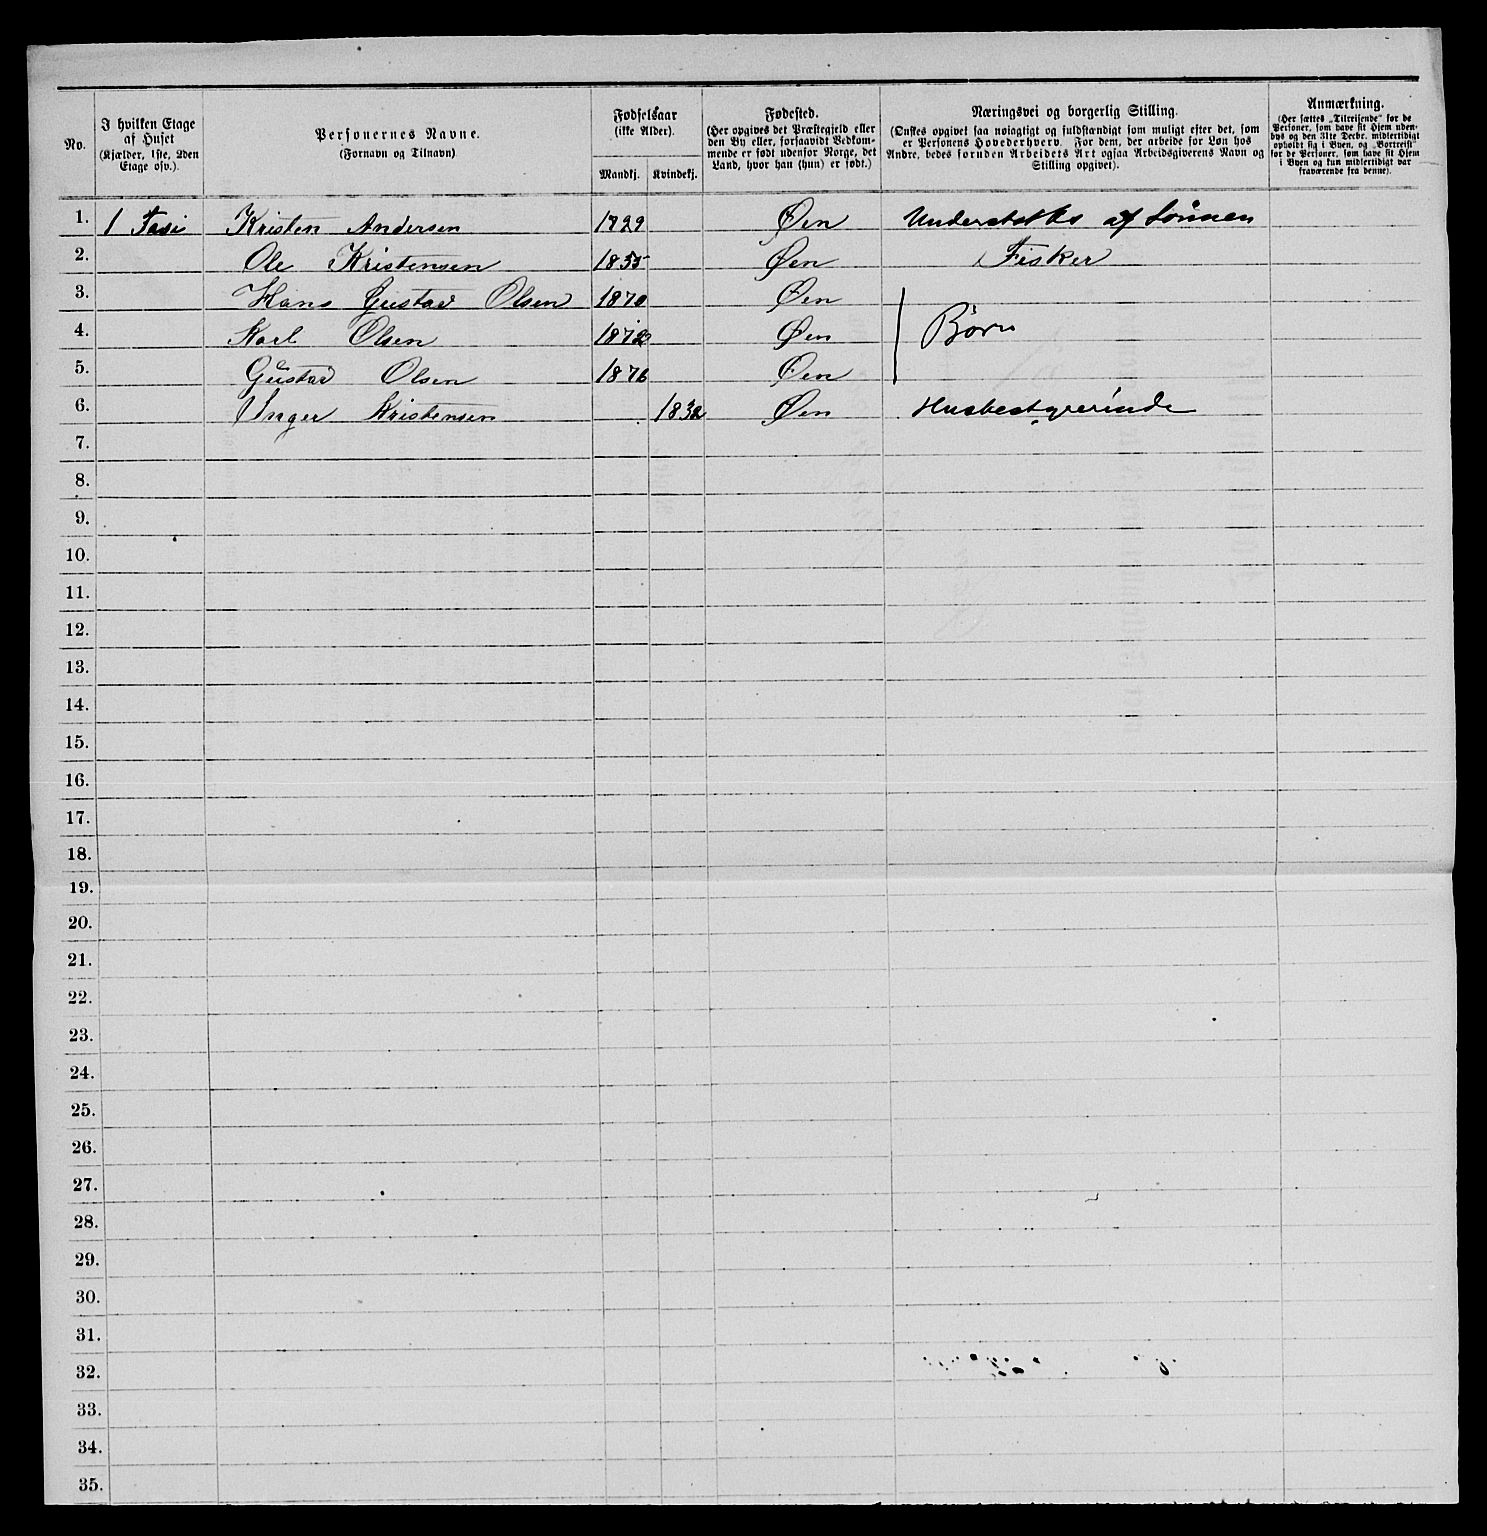 No.
I hvilken Etage af Huset (Kjælder, 1ste, 2den Etage osv.).
Personernes Navne.
(Fornavn og Tilnavn)
Fødselsaar
(ikke Alder).
Mandkj. Kvindekj.
Fødested.
(Her opgives det Præstegjeld eller
den By eller, forsaavidt Vedkom-
mende er født udenfor Norge, det
Land, hvor han (hun) er født.)
Næringsvei og borgerlig Stilling.
(Ønskes opgivet saa nøiagtigt og fuldstændigt som muligt efter det, som
er Personens Hovederhverv. For dem, der arbeide for Løn hos
Andre, bedes foruden Arbeidets Art ogsaa Arbeidsgiverens Navn og
Stilling opgivet).
Anmærkning.
(Her sættes „Tilreisende" for de
Personer, som have sit Hjem uden-
bys og den 31te Decbr. midlertidigt
opholdt sig i Byen, og „Bortreist"
for de Personer, som have sit Hjem
i Byen og kun midlertidigt var
fraværende fra denne).
1. 1 Kristen Andersen 1829 Øen af Sønnen
2. Ole Kristensen 1855 Øen Fisker
3. Hans Gustav Olsen 1870 Øen
4. Karl Olsen 1872 Øen Børn
5. Gustav Olsen 1876 Øen
6. Inger Kristensen 1832 Øen Husbestyrerinde
7.
8.
9.
10.
11.
12.
13.
14.
15.
16.
17.
18.
19.
20.
21.
22.
23.
24.
25.
26.
27.
28.
29.
30.
31.
32.
33.
34.
35.